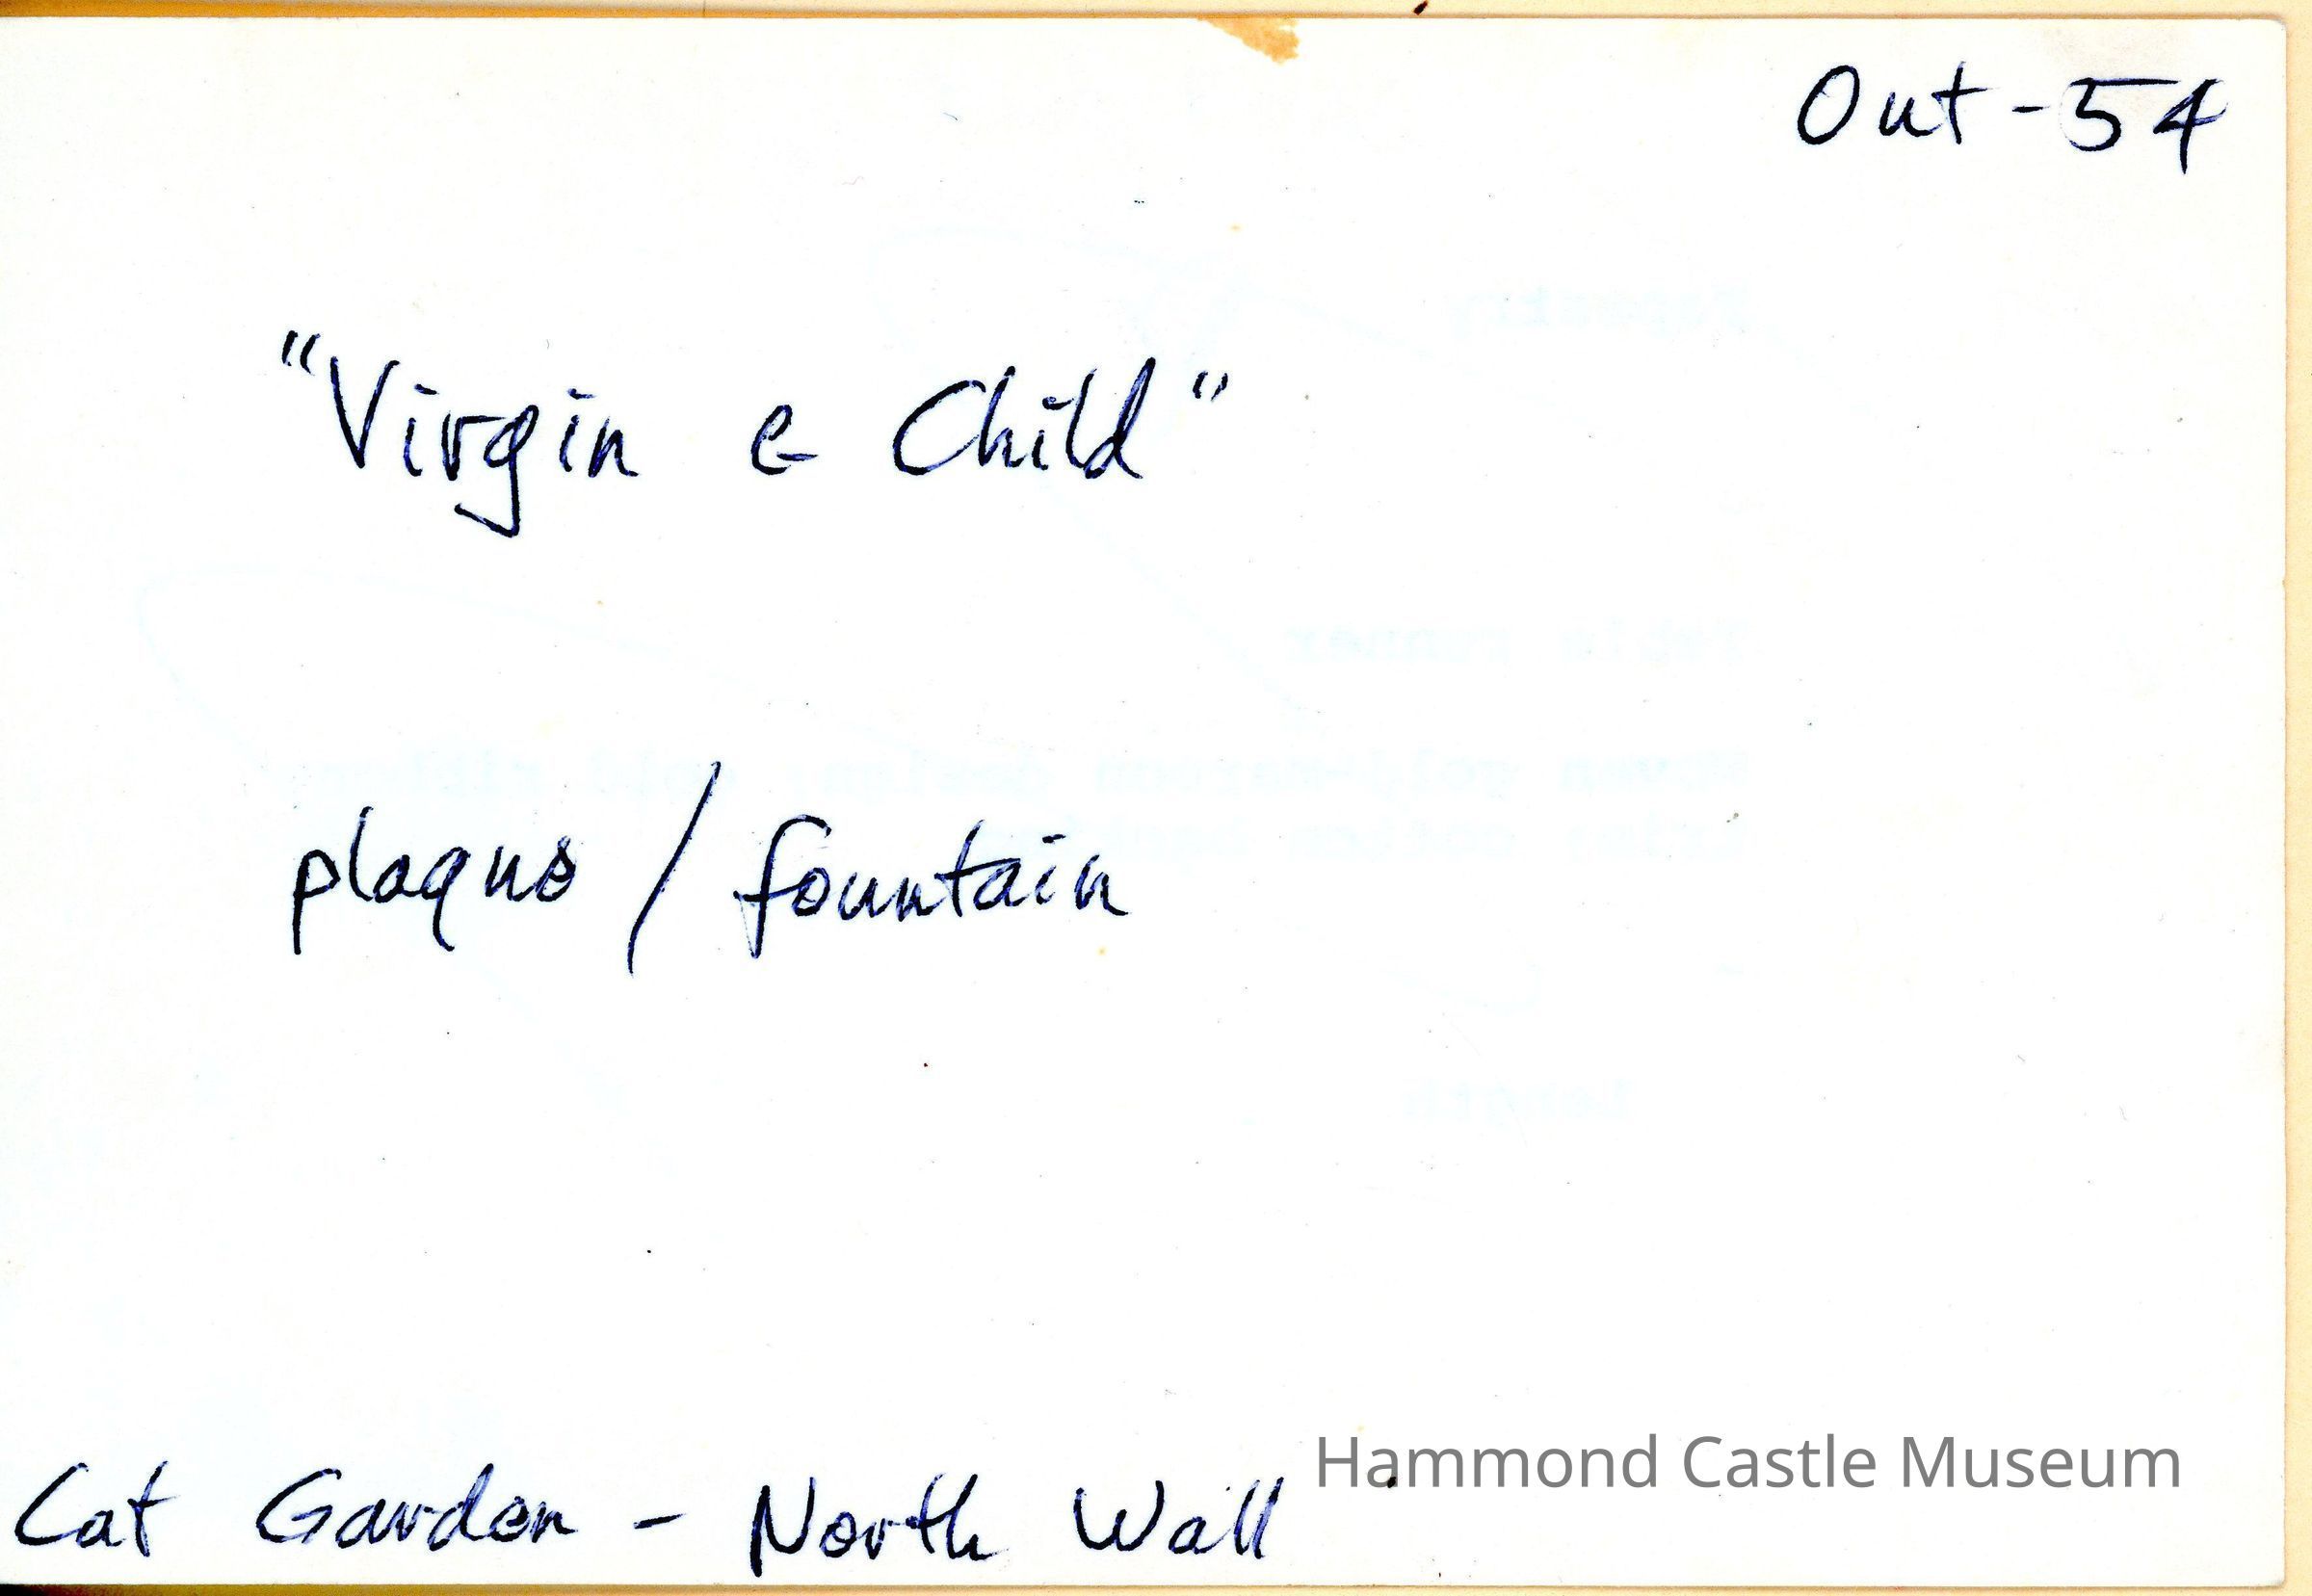 Out-54
"Virgin & Child"
plaque / fountain
Cat Garden - North Wall
Hammond Castle Museum